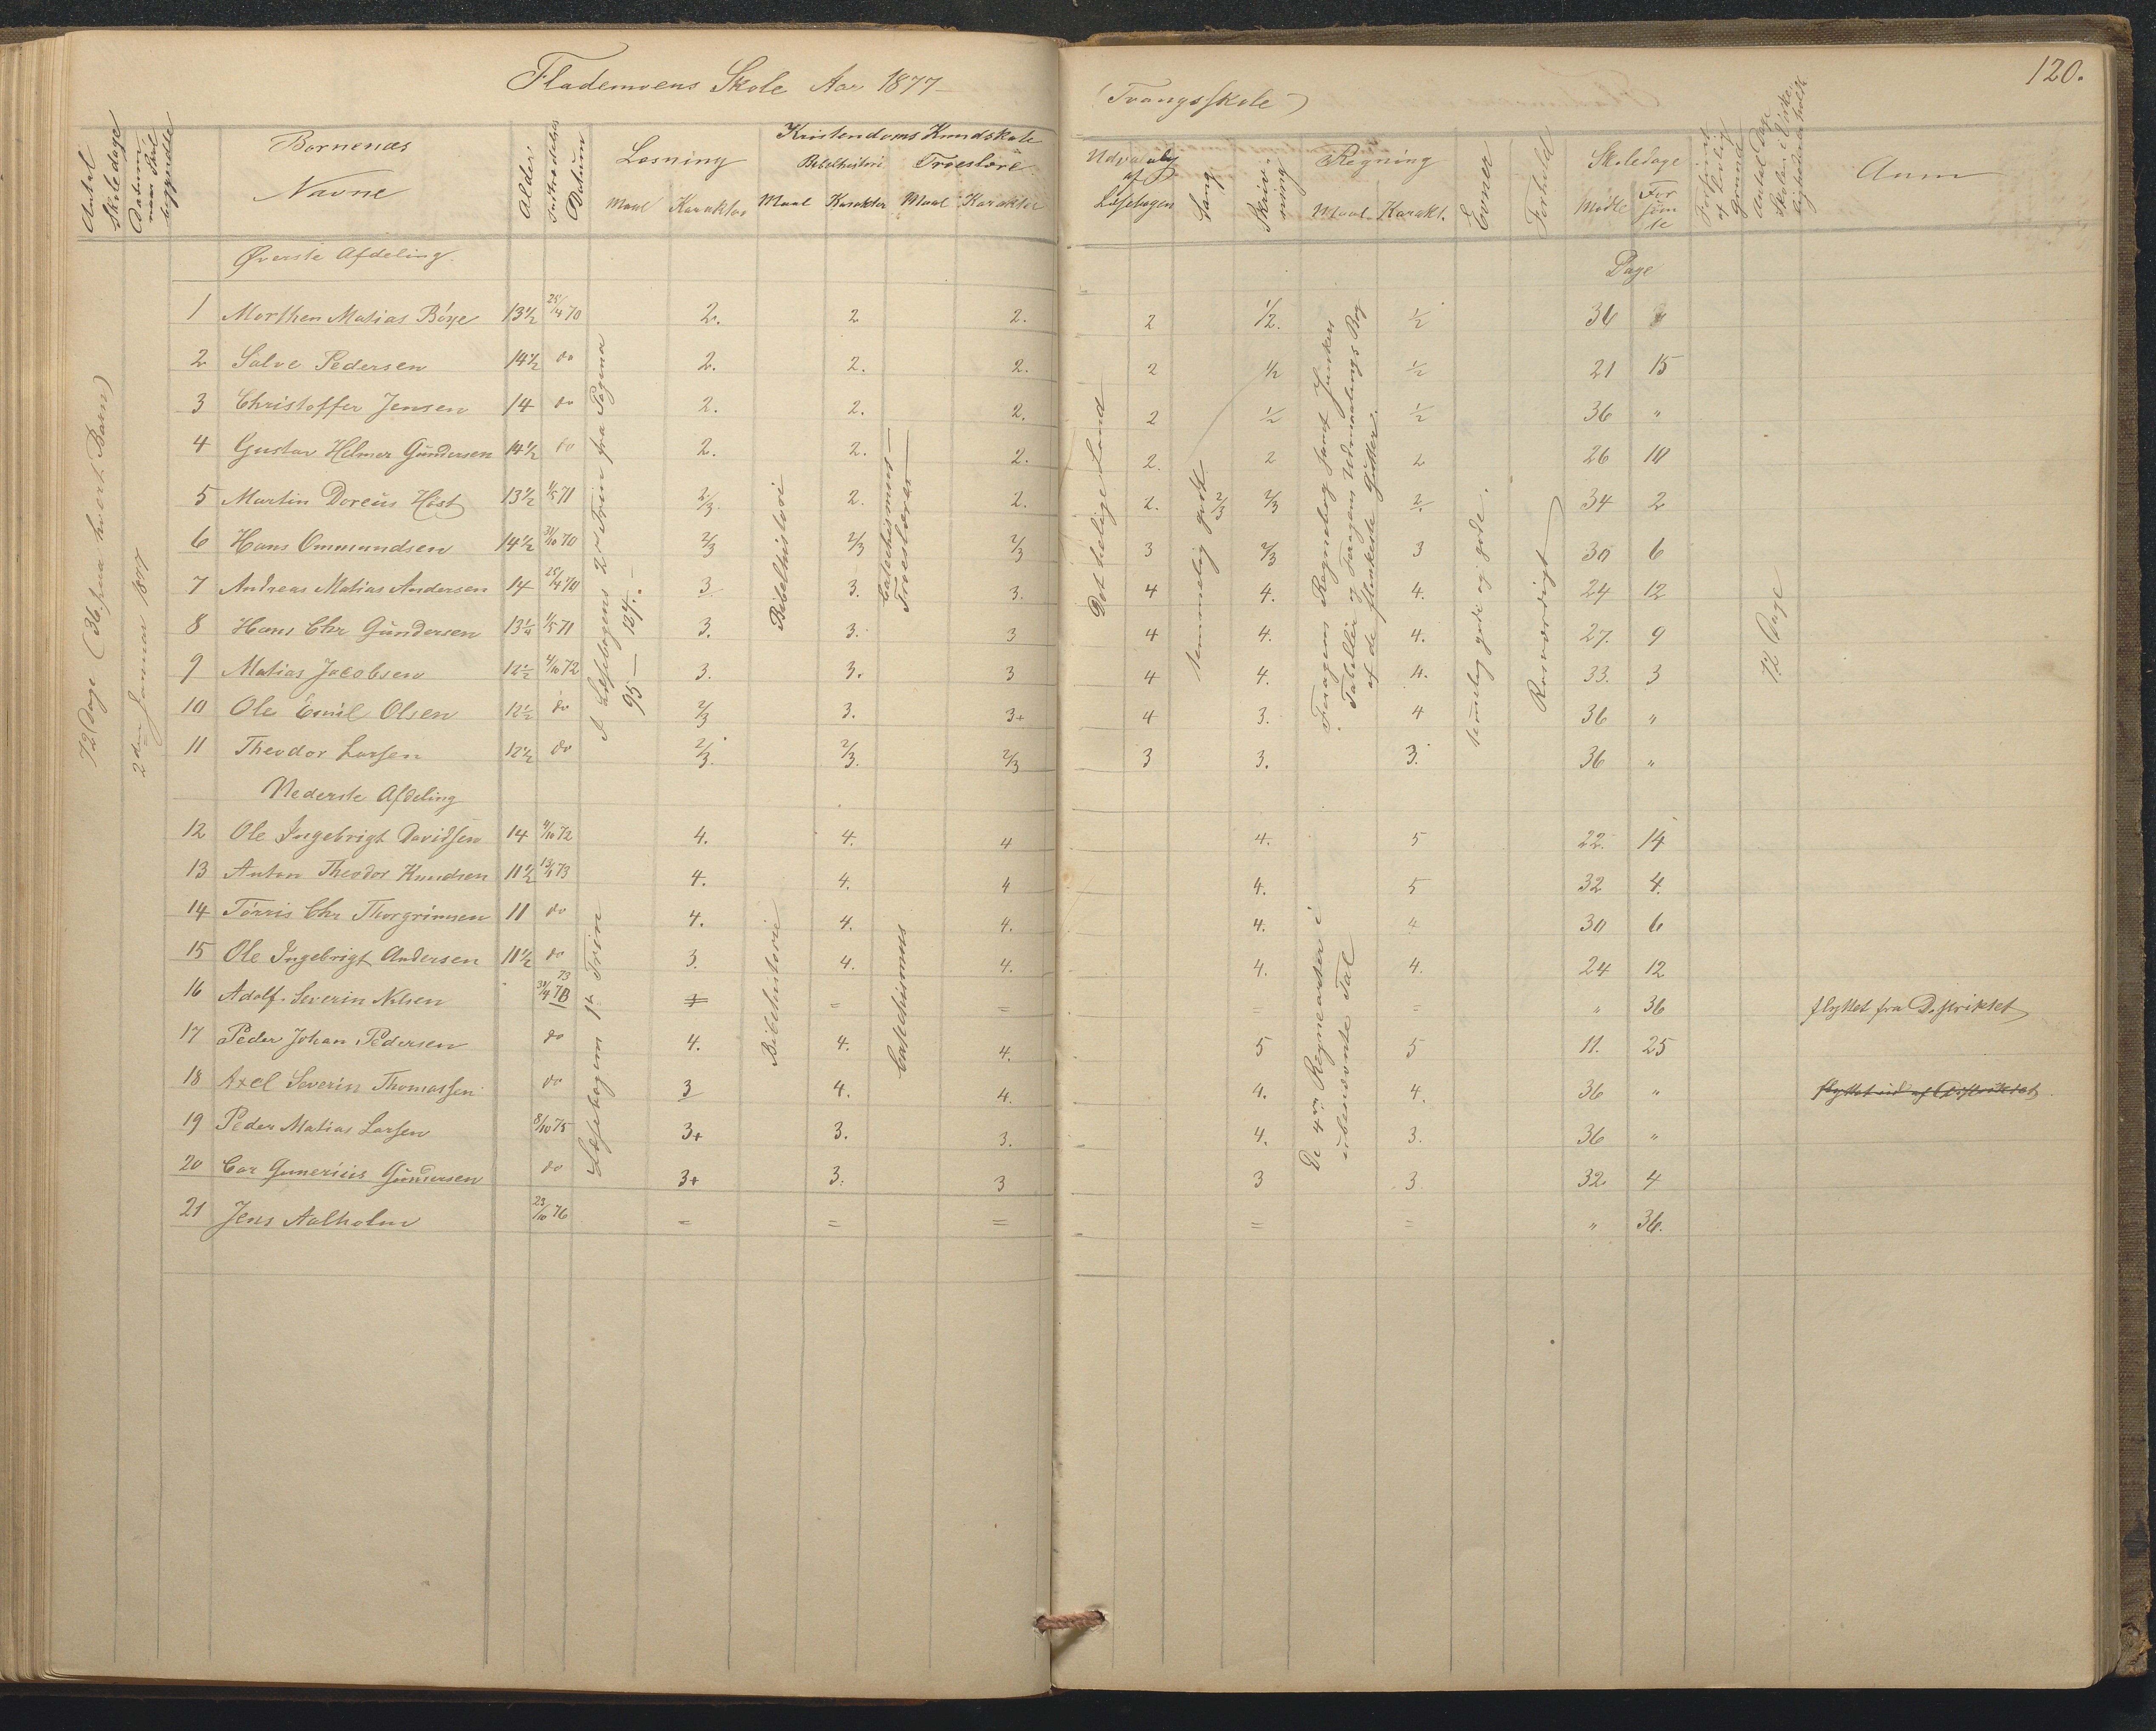 Flademoens Skole Aar 1877
(Tvangsskole)
120.
Antal Skoledage
Datum, naar
Børnenes Navne
Alder
Datum
Læsning
Maal Karakter
Kristendoms Kundskab
Bibelhistorie Troeslære
Maal Karakter Maal Karakter
Udvalg af Læsebogen
Sang
Skrivning
Regning
Maal Karakt.
Evner
Forhold
Skoledage
Mødte Forsømte
Anm
72 Dage (36 paa hvert Barn)
2den Januar 1877
Øverste Afdeling.
Dage
1 Morthen Matias Böye 13½ 25/4 70 2. 2 2. 2 1/2. ½ 36
2 Salve Pedersen 14½ do 2. 2. 2. 2 ½ ½ 21 15
3 Christoffer Jensen 14 do 2. 2. 2. 2 ½ ½ 36 "
4 Gustav Helmer Gündersen 14½ do 2. 2. 2. 2. 2 2 26 10
5 Martin Doreüs Höst 13½ 1/5 71 2/3. 2. 2. 2. 2/3 2/. 34 2
6 Hans Ommundsen 14½ 31/10 70 2/3 2/3 2/3 3 2/3 3 30 6
7 Andreas Matias Andersen 14 25/4 70 3 3. 3. 4 4. 4. 24 12
8 Hans Chr Gündersen 13¼ 1/5 71 3. 3. 3 4 4. 4. 27. 9
9 Matias Jacobsen 12½ 4/10 72 3. 3. 3 4 4. 4. 33. 3
10 Ole Emil Olsen 12½ do 2/3 3. 3+ 4 3. 4 36 "
11 Theodor Larsen 12½ do 2/3. 2/3. 2/3 3 3. 3. 36 "
I Læsebogens 2det Trin fra Pagina 95 — 134. —
Bibelhistorie
Catechismus — Troeslæren —
Det hellige Land
temmelig godt 2/3
Tabeller og Forgens Udmaalings Bog
af de flinkeste Gutter.
temmelig gode og gode.
Rosværdigt
72 Dage
Nederste Afdeling
12 Ole Ingebrigt Davidsen 14 4/10 72 4. 4. 4 4. 5 22. 14
13 Anton Theodor Knudsen 11½ 13/1 73 4. 4. 4 4. 5 32 4.
14 Törris Chr Thorgrimsen 11 do 4. 4. 4. 4. 4 30 6
15 Ole Ingebrigt Andersen 11½ do 3. 4. 4. 4. 4. 24 12
16 Adolf Severin Nilsen 30/4 73 = = = = " 36 flyttet fra Distriktet
17 Peder Johan Pedersen do 4. 4. 4. 5 5 11. 25
18 Axel Severin Thomassen do 3 4. 4. 4. 4. 36 " flyttet ud af Distriktet
19 Peder Matias Larsen 8/10 75 3+ 3. 3. 4. 3. 36 "
20 Car Gunerius Gündersen do 3+ 3. 3 3 3 32 4
21 Jens Aalholm 23/10 76 = = = = = " 36.
Læsebogens 1ste Trin
Bibelhistorie
Catechismus
De 4re Regnearter i
ubenævnte Tal